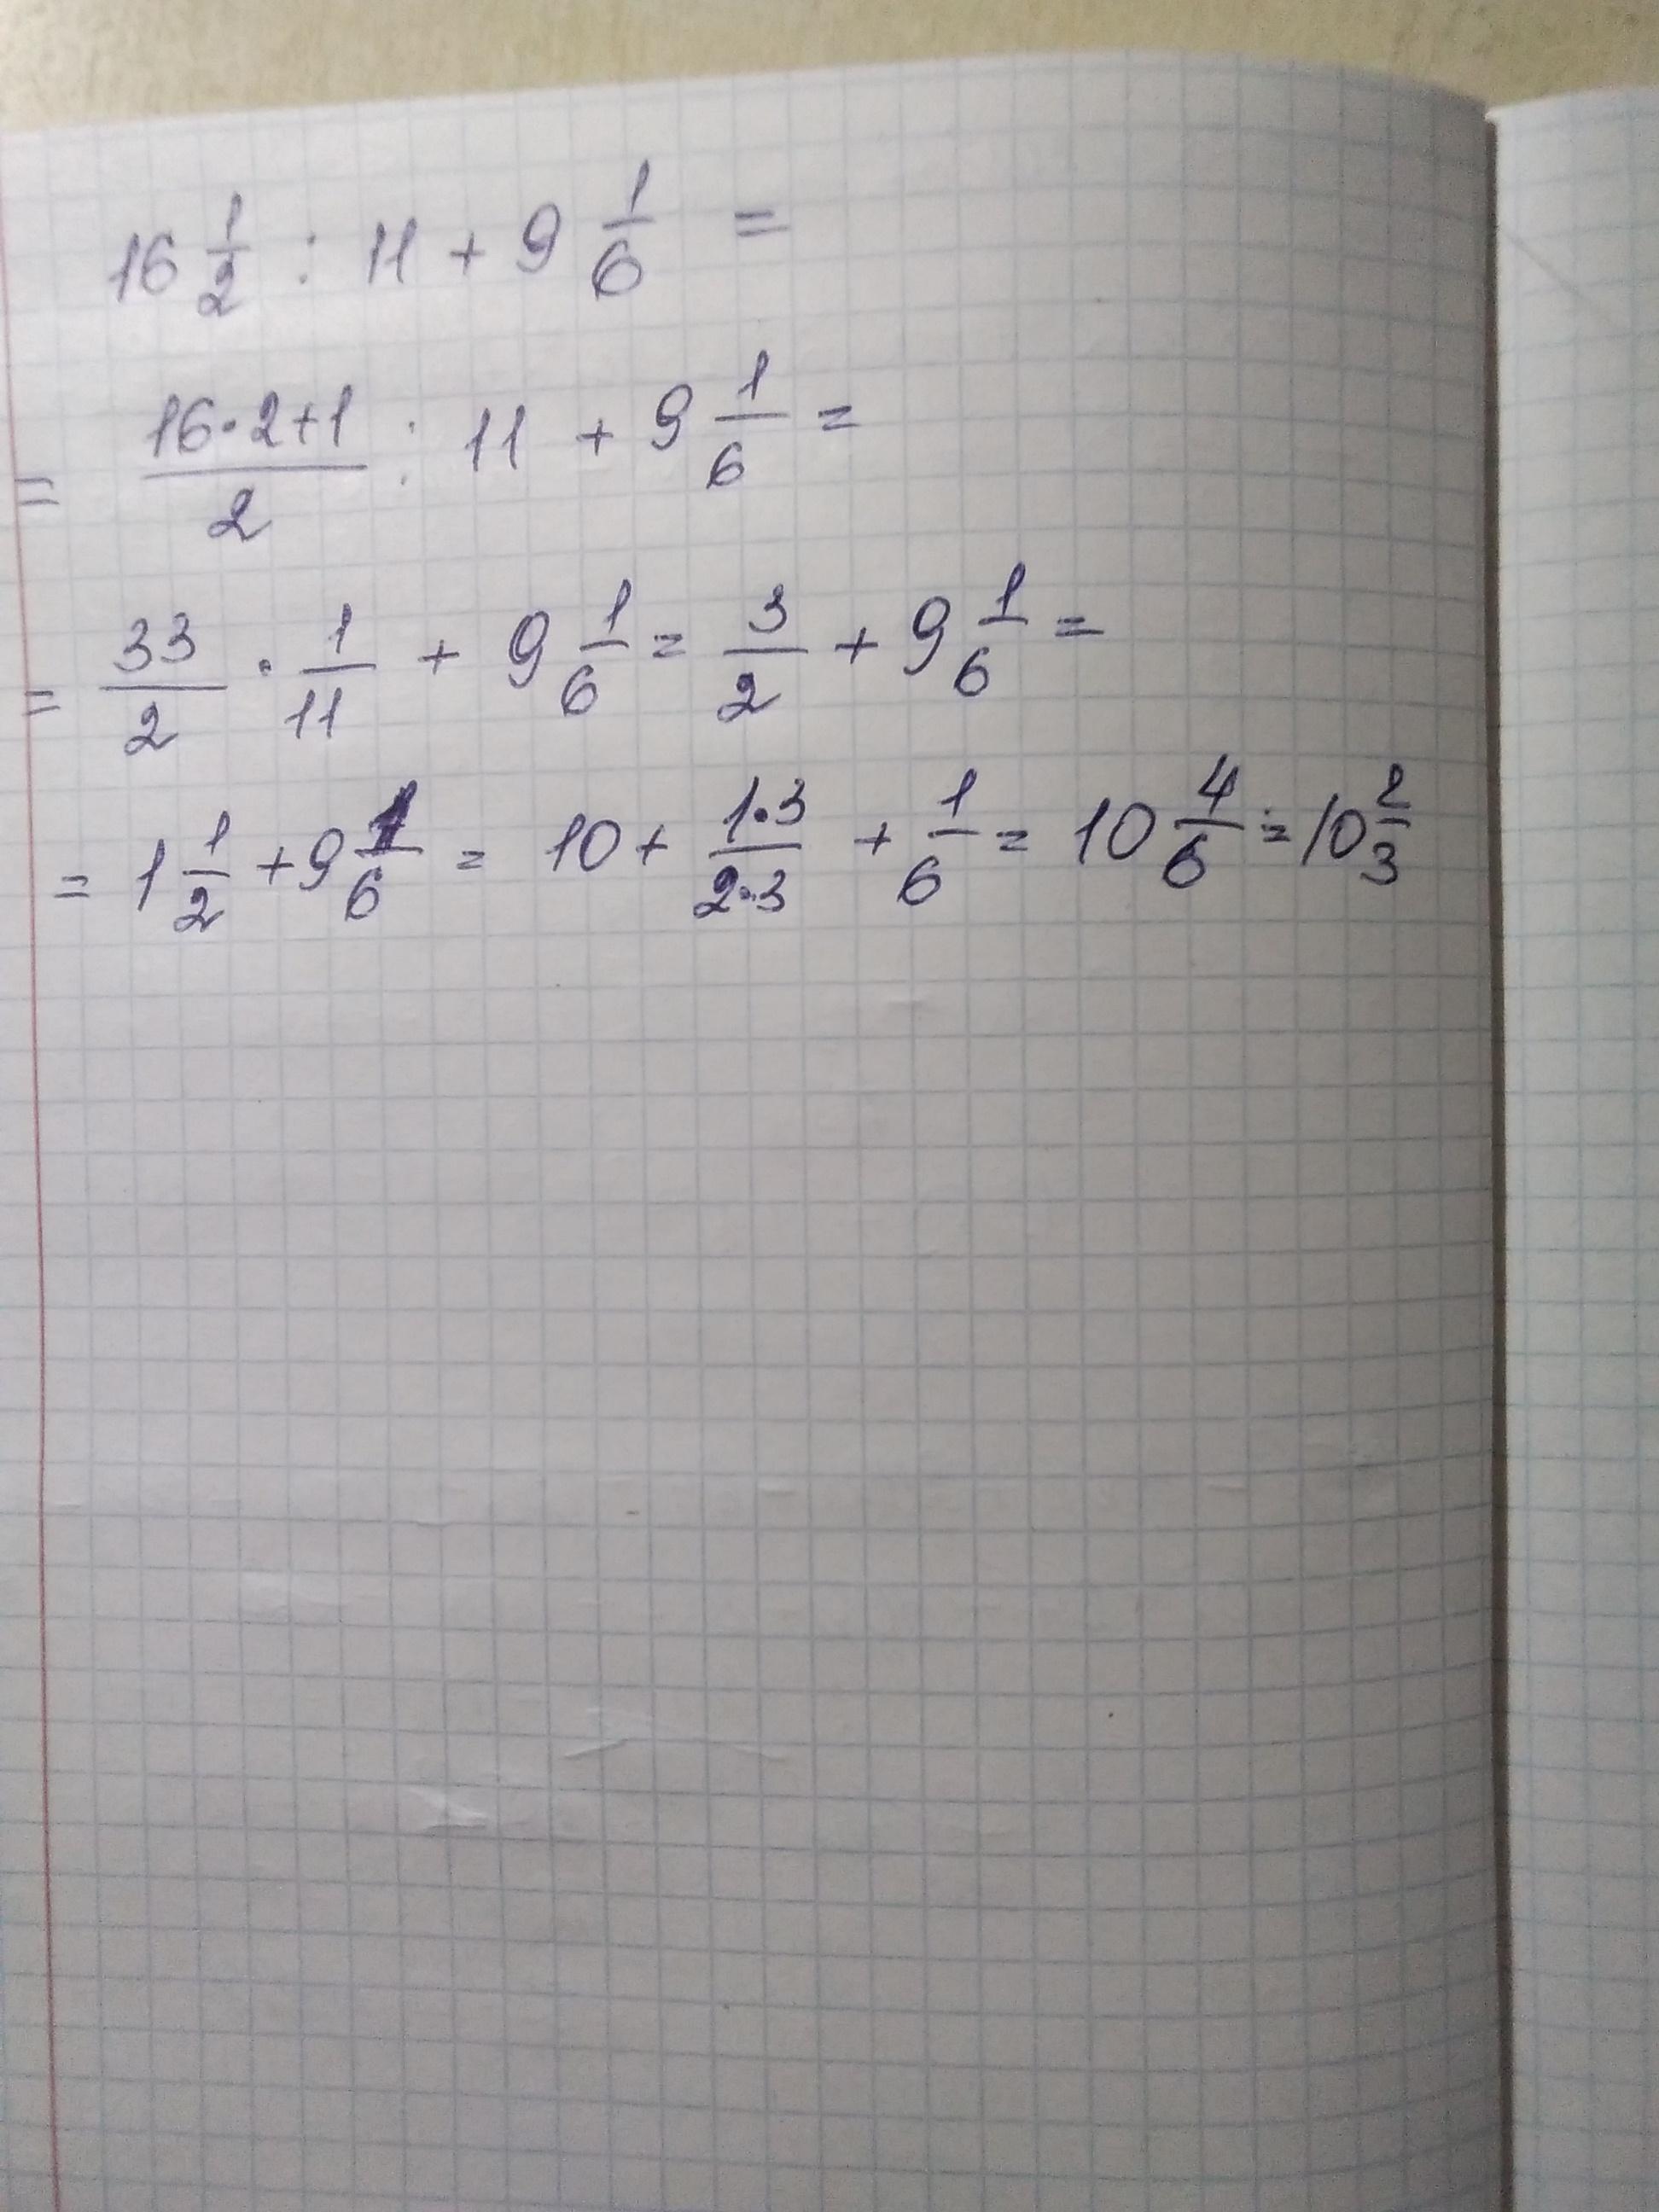 16 1/2 : 11 + 9 1/6 =
= (16·2+1)/2 : 11 + 9 1/6 =
= 33/2 · 1/11 + 9 1/6 = 3/2 + 9 1/6 =
= 1 1/2 + 9 1/6 = 10 + (1·3)/(2·3) + 1/6 = 10 4/6 = 10 2/3